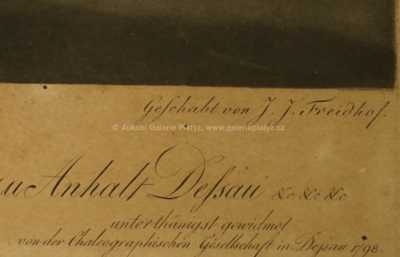 Geschabt von J. J. Freidhof.
© Aukční Galerie Platýz, www.galerieplatyz.cz
zu Anhalt Dessau &c &c &c
unterthänigst gewidmet
von der Chalcographischen Gesellschaft in Dessau 1798.